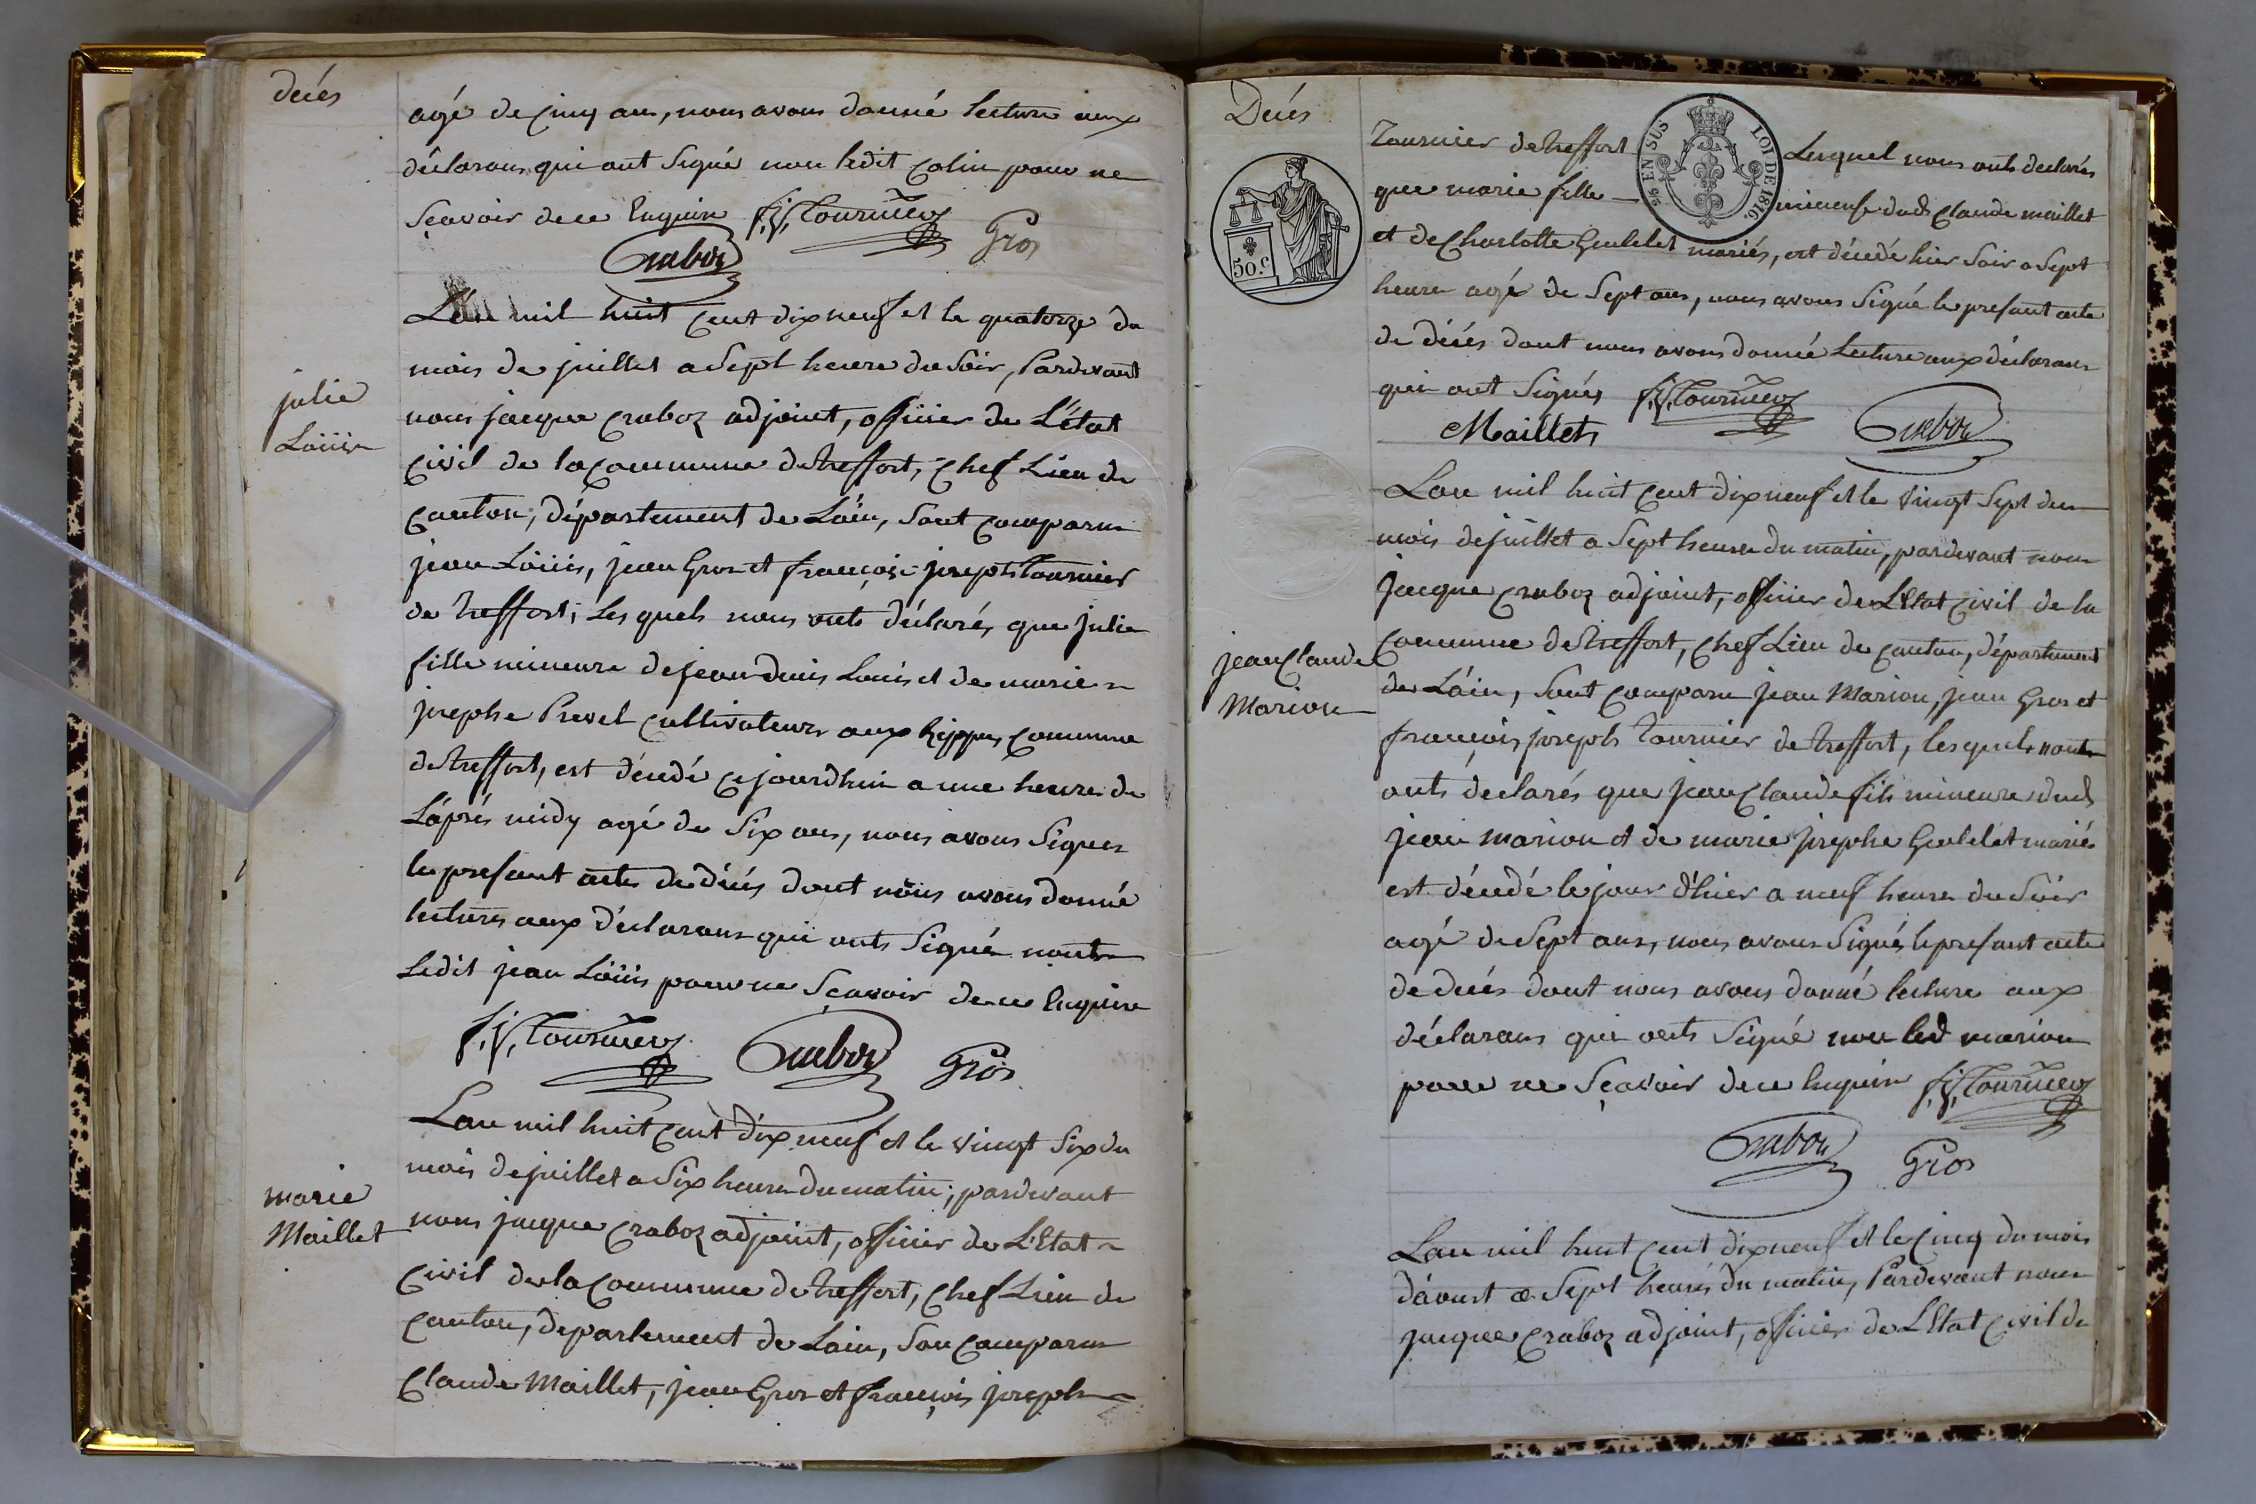 decés
agé de cinq ans, nous avons donné lecture aux
déclarans qui ont signé non ledit Colin pour ne
sçavoir de ce enquin f. j. Tournier
Gros
Craboz
L'an mil huit cent dix neuf et le quatorze du
mois de juillet a sept heure du soir, Pardevant
nous jacque Craboz adjoint, officier de L'état
Civil de la Commune de treffort, Chef Lieu de
Canton, département de Láin, sont comparus
julie
Loüis
jean Loüis, jean Gros et françois joseph Tournier
de treffort, Lesquels nous onts déclarés que julie
fille mineure de jean denis Louis et de marie
josephe Prevel cultivateurs aux hippes, commune
de treffort, est décedé cejourdhuin a une heure de
L'aprés midy agé de six ans, nous avons signés
le present acte de décés dont nous avons donné
lecture aux déclarans qui onts signé nonts
Ledit jean Loüis pour ne sçavoir de ce enquire
f. j. Tournier Craboz Gros
Lan mil huit cent dix neuf et le vingt six du
mois de juillet a six heure du matin, pardevant
marie
Maillet
nous jacque Craboz adjoint, officier de L'Etat
Civil de la Commune de treffort, Chef Lieu de
Canton, departement de Lain, son comparus
Claude Maillet, jean Gros et françois joseph
Decés
Tournier de treffort Lesquel nous onts declarés
que marie fille mineure dud. Claude maillet
et de Charlotte Gulelet mariés, est décedé hier soir a sept
heure agé de sept ans, nous avons signé le present acte
de décés dont nous avons donné Lecture aux déclarans
qui ont signés f. j. Tournier
Maillet Craboz
26 EN SUS
LOI DE 1816.
50.c
Lan mil huit cent dix neuf et le vingt sept du
mois de juillet a sept heure du matin, pardevant nous
jacque Craboz adjoint, officier de L'Etat Civil de la
Commune de treffort, Chef Lieu de canton, département
jean Claude
Marion
de Láin, sont comparu jean Marion, jean Gros et
françois joseph Tournier de treffort, lesquels nous
onts declarés que jean Claude fils mineure dud.
jean marion et de marie josephe Gulelet mariés
est décedé le jour d'hier a neuf heure du soir
agé de sept ans, nous avons signés le present acte
de decés dont nous avons donné lecture aux
déclarans qui onts signé non led marion
pour ne sçavoir de ce enquin f. j. Tournier
Craboz Gros
Lan mil huit cent dix neuf et le cinq du mois
dáoust a sept heures du matin, Pardevant nous
jacque Craboz adjoint, officier de L'Etat Civil de